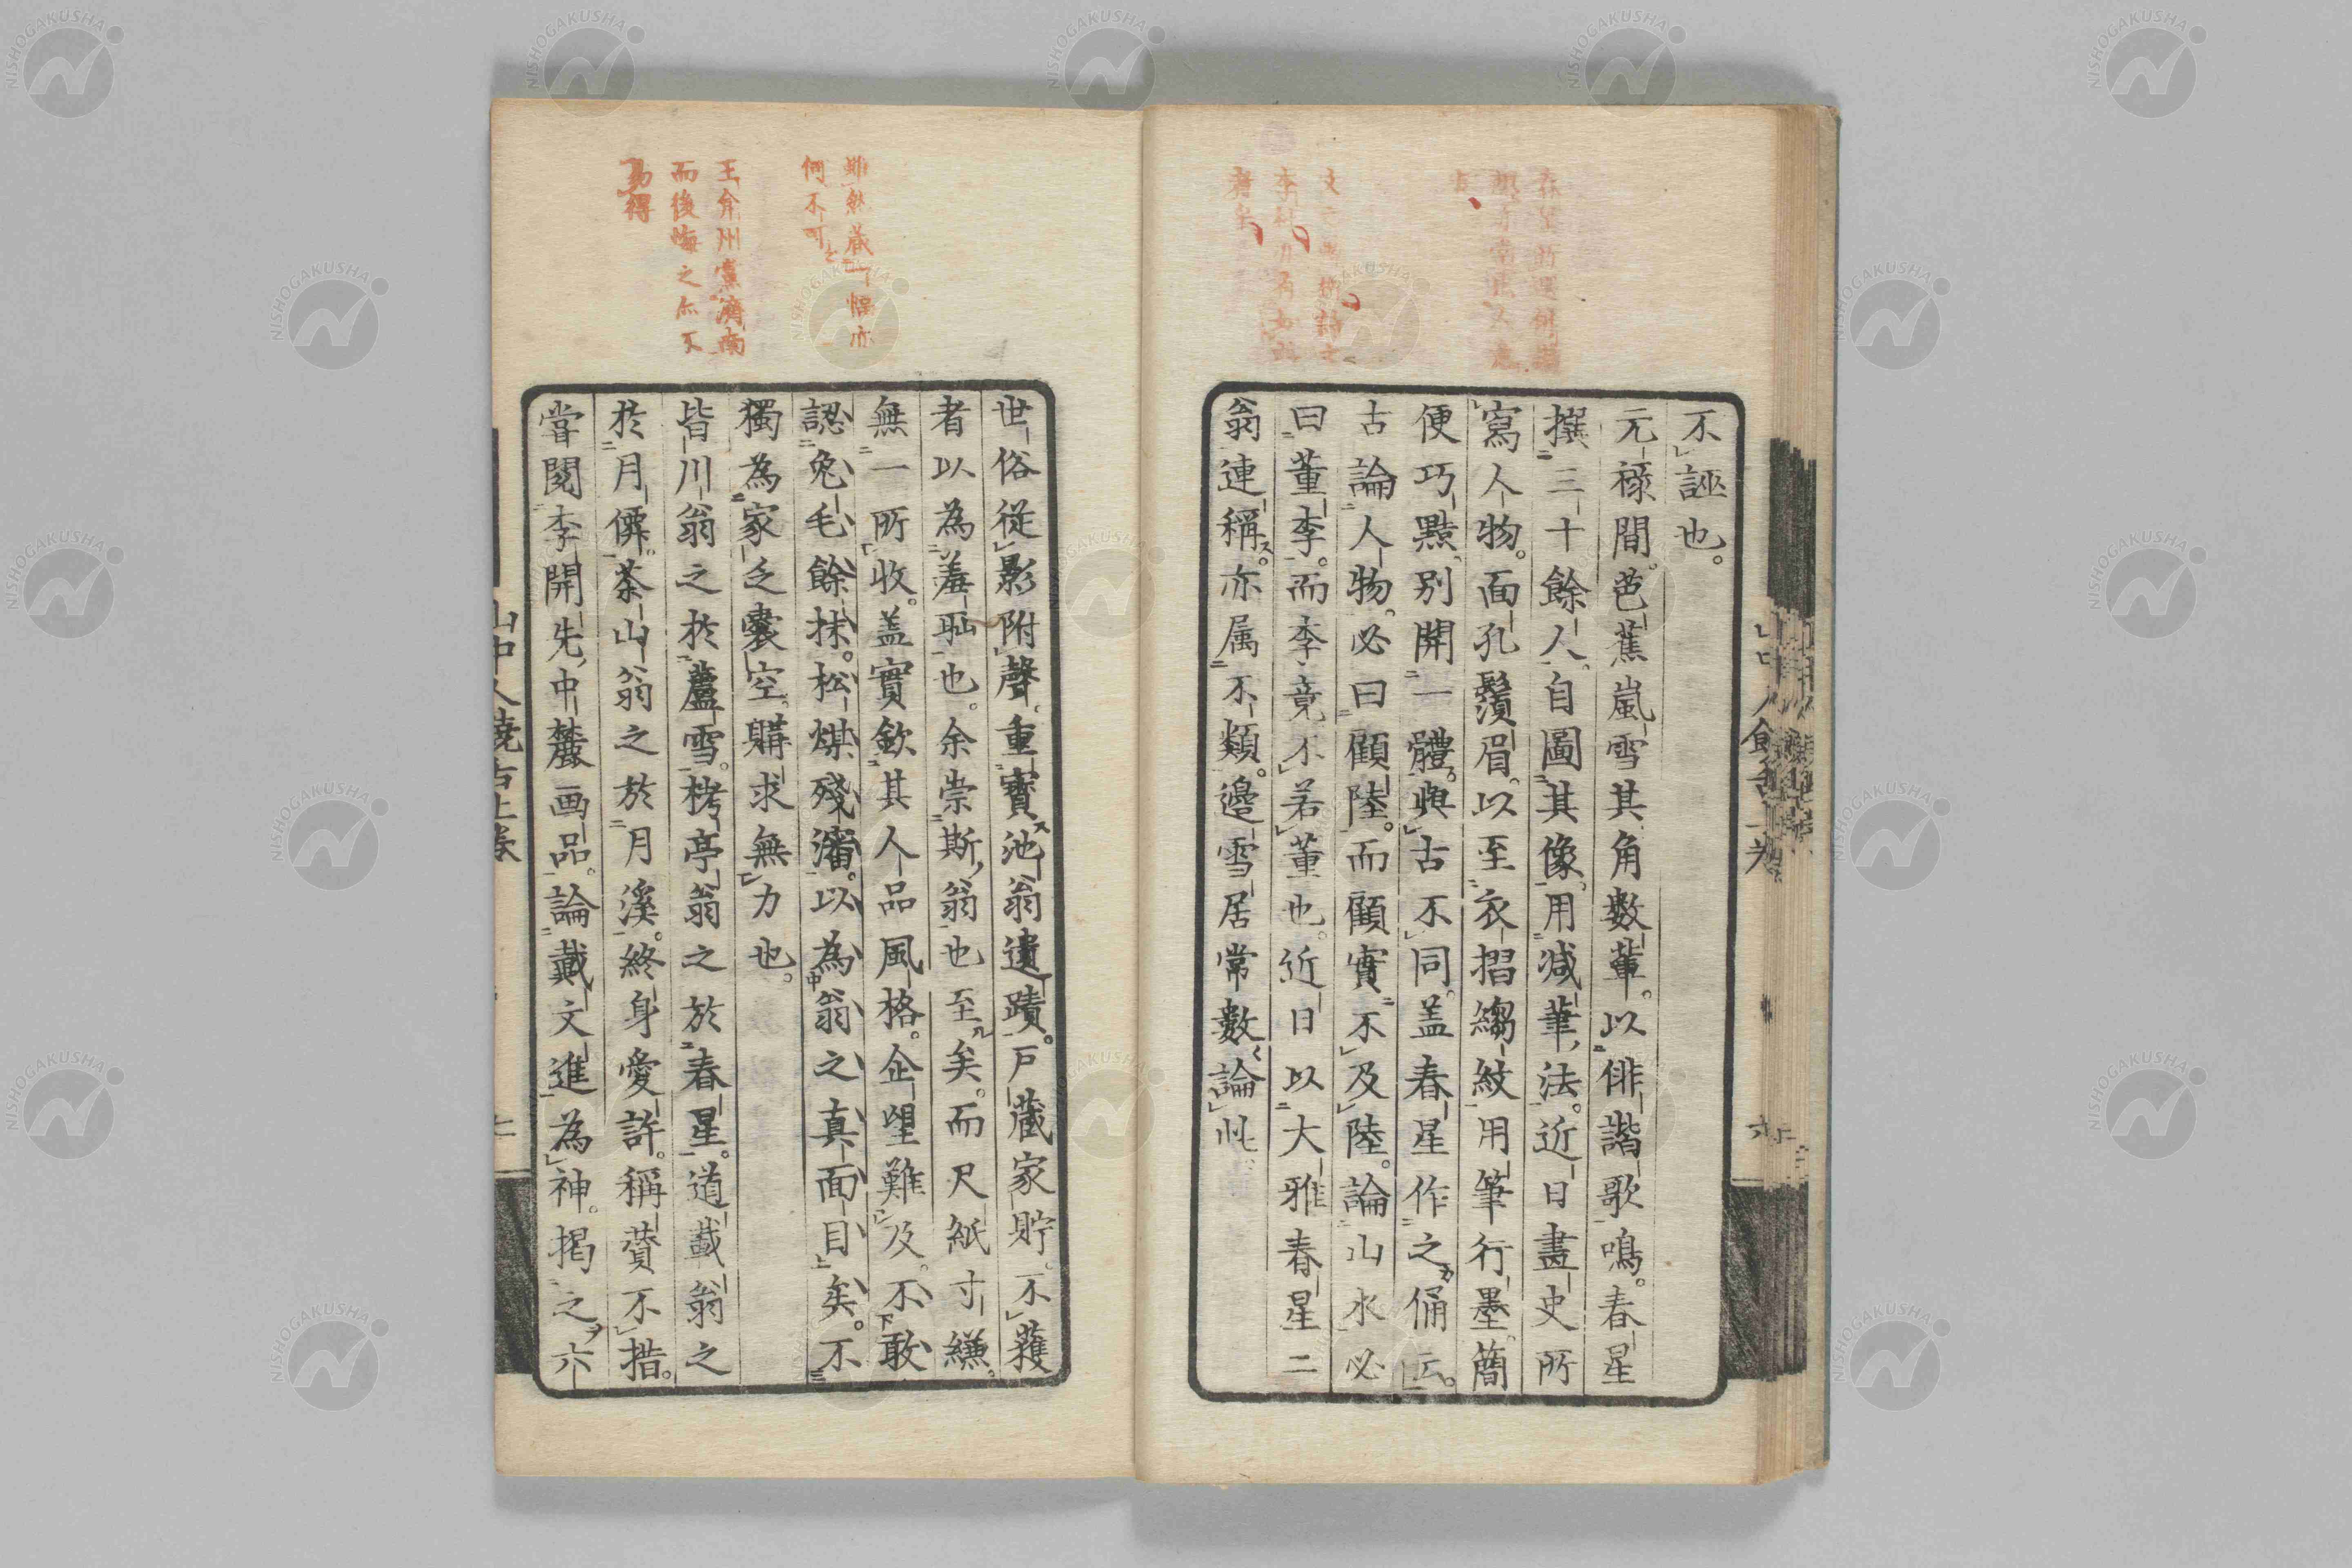 不誣也。
元祿間。芭蕉嵐雪其角數輩。以俳諧歌鳴。春星
撰三十餘人。自圖其像。用減筆法。近日畫史所
寫人物。面孔鬚眉。以至衣摺縐紋。用筆行墨。簡
便巧點。別開一體。與古不同。盖春星作之俑云。
古論人物。必曰顧陸。而顧實不及陸。論山水必
曰董李。而李竟不若董也。近日以大雅春星二
翁連稱。亦属不類。邊雪居常數論此。
世俗從影附聲。重寶池翁遺蹟。戸藏家貯。不獲
者以為羞耻也。余崇斯翁也至矣。而尺紙寸縑。
無一所收。盖實欽其人品風格。企望難及。不敢
認兔毛餘抹。松煤殘瀋。以為翁之真面目矣。不
獨為家乏囊空。購求無力也。
皆川翁之於蘆雪。栲亭翁之於春星。道載翁之
於月僊。茶山翁之於月溪。終身愛許。稱賛不措。
嘗閱李開先中麓画品。論戴文進為神。揭之六
雖然藏一幅亦
何不可
王弇州黨濟南
而後悔之亦不
易得
NISHOGAKUSHA